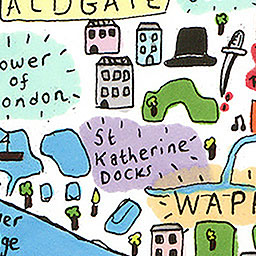 ALDGATE
ower
of
London
St
Katherine
DOCKS
WAPP
er
ge